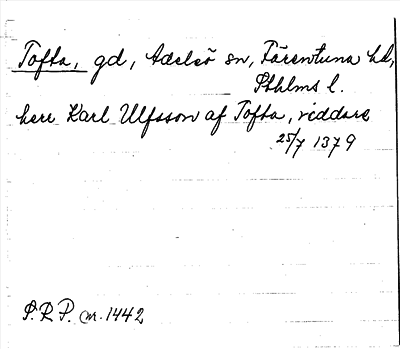 Tofta, gd, Adelsö sn, Färentuna hd,
Sthlms l.
herr Karl Ulfsson af Tofta, riddare
25/7 1379
S.R.P. nr. 1442